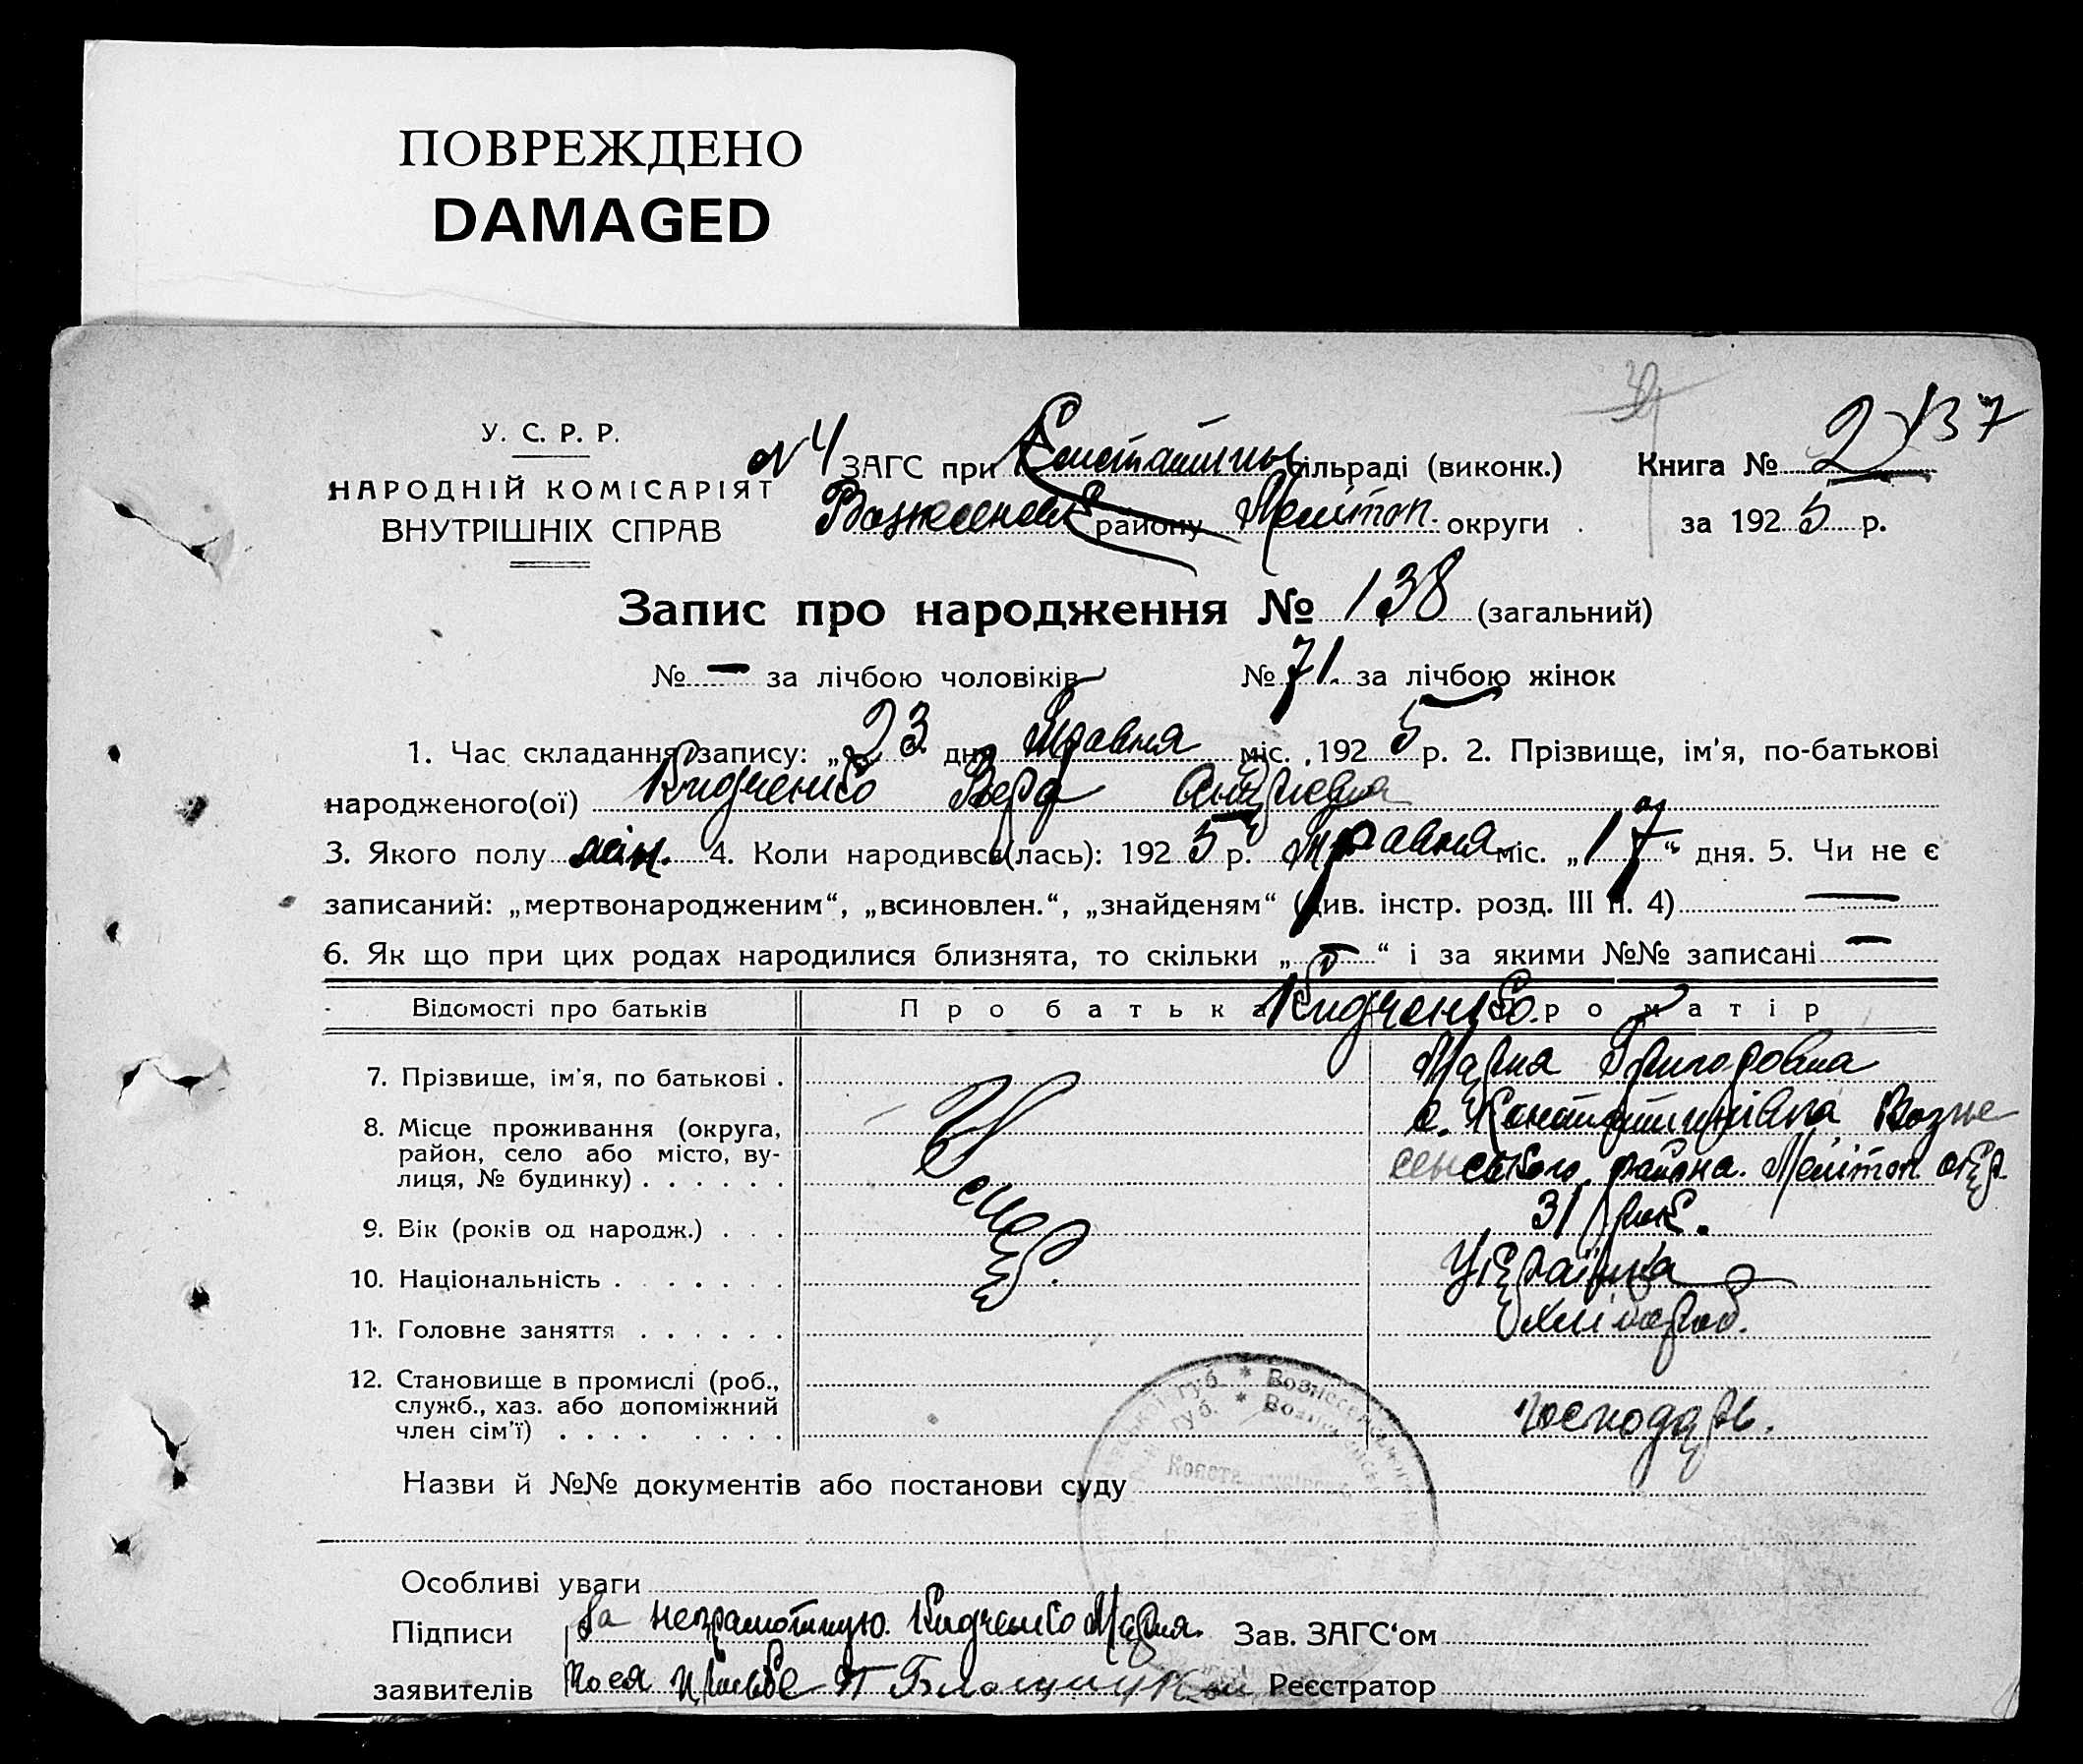 ПОВРЕЖДЕНО
DAMAGED
У. С. Р. Р.
НАРОДНІЙ КОМІСАРІЯТ
ВНУТРІШНІХ СПРАВ
N 4 ЗАГС при сільраді (виконк.)
району Меліտоп. округи
Книга № 2 137
за 1925 р.
Запис про народження № 138 (загальний)
№ — за лічбою чоловіків № 71. за лічбою жінок
1. Час складання запису: „23 дня Травня міс. , 1925 р. 2. Прізвище, ім'я, по-батькові
народженого(ої) Вера
3. Якого полу жін. 4. Коли народився(лась): 1925 р. Травня міс. „17“ дня. 5. Чи не є
записаний: „мертвонародженим“, „всиновлен.“, „знайденям“ (див. інстр. розд. III п. 4) —
6. Як що при цих родах народилися близнята, то скільки „—“ і за якими №№ записані —
Відомості про батьків Про батька Про матір
7. Прізвище, ім'я, по батькові . Мария Григоровна
8. Місце проживання (округа, с. Константинівка Возне
район, село або місто, ву- сенського района. Меліտоп окр.
лиця, № будинку) . . . . . .
9. Вік (років од народж.) . . . 31 рік.
10. Національність . . . . . . Українка
11. Головне заняття . . . . . . хлібороб.
12. Становище в промислі (роб.,
служб., хаз. або допоміжний господарь.
член сім'ї) . . . . . . . .
Назви й №№ документів або постанови суду
Особливі уваги
Підписи За неграмотную Мария. Зав. ЗАГС‘ом
заявителів по ея просьбе П Реєстратор